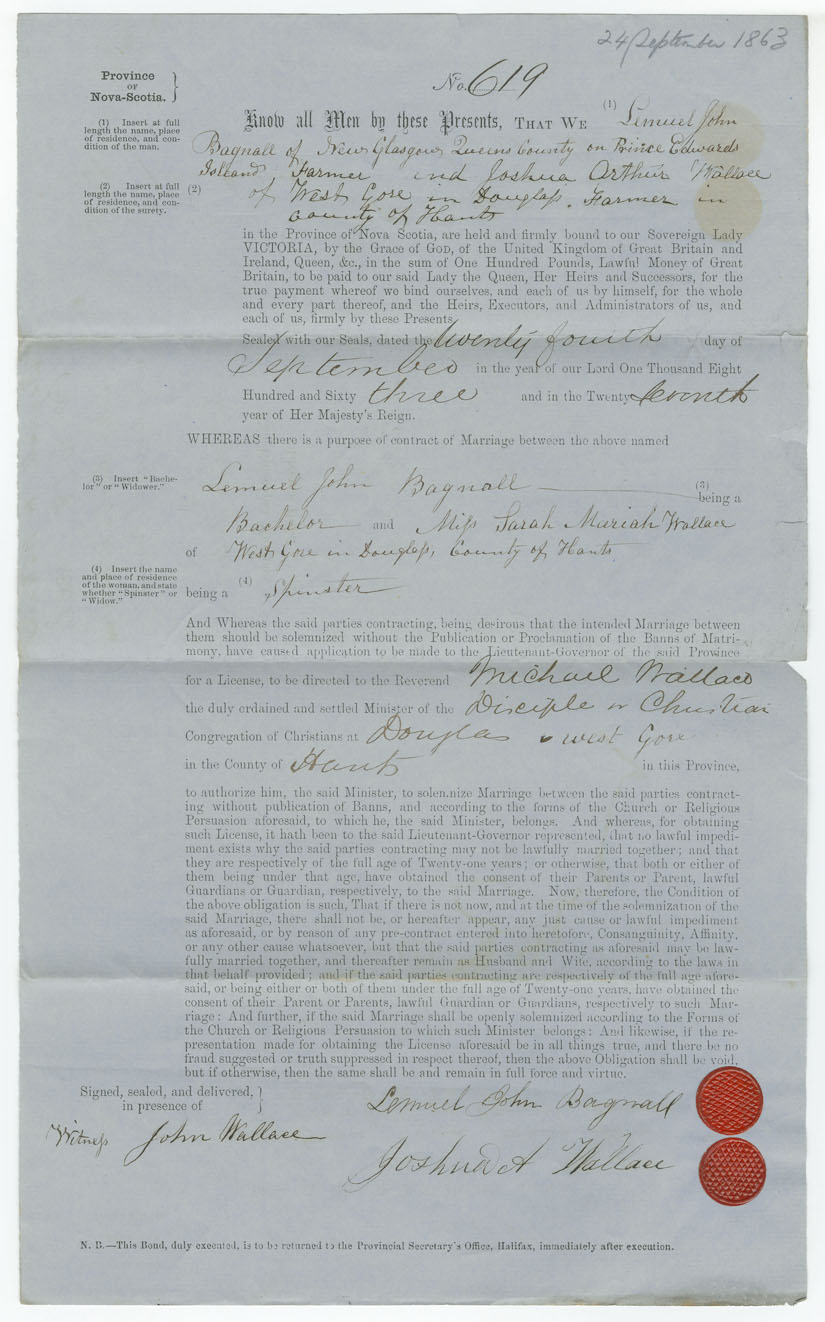 24 September 1863
Province
OF
Nova-Scotia.
No. 619
(1) Insert at full
length the name, place
of residence, and con-
dition of the man.
(2) Insert at full
length the name, place
of residence, and con-
dition of the surety.
Know all Men by these Presents, THAT WE (1) Lemuel John
Bagnall of New Glasgow Queens County on Prince Edwards
Island Farmer and Joshua Arthur Wallace
(2) of West Gore in Douglass. Farmer in
County of Hants
in the Province of Nova Scotia, are held and firmly bound to our Sovereign Lady
VICTORIA, by the Grace of GOD, of the United Kingdom of Great Britain and
Ireland, Queen, &c., in the sum of One Hundred Pounds, Lawful Money of Great
Britain, to be paid to our said Lady the Queen, Her Heirs and Successors, for the
true payment whereof we bind ourselves, and each of us by himself, for the whole
and every part thereof, and the Heirs, Executors, and Administrators of us, and
each of us, firmly by these Presents.
Sealed with our Seals, dated the twenty fourth day of
September in the year of our Lord One Thousand Eight
Hundred and Sixty three and in the Twenty seventh
year of Her Majesty's Reign.
WHEREAS there is a purpose of contract of Marriage between the above named
(3) Insert "Bache-
lor" or "Widower."
Lemuel John Bagnall (3) being a
Bachelor and Miss Sarah Muriah Wallace
of West Gore in Douglass, County of Hants
(4) Insert the name
and place of residence
of the woman, and state
whether "Spinster" or
"Widow."
being a (4) Spinster
And Whereas the said parties contracting, being desirous that the intended Marriage between
them should be solemnized without the Publication or Proclamation of the Banns of Matri-
mony, have caused application to be made to the Lieutenant-Governor of the said Province
for a License, to be directed to the Reverend Michael Wallace
the duly ordained and settled Minister of the Disciple or Christian
Congregation of Christians at Douglas & west Gore
in the County of Hants in this Province,
to authorize him, the said Minister, to solemnize Marriage between the said parties contract-
ing without publication of Banns, and according to the forms of the Church or Religious
Persuasion aforesaid, to which he, the said Minister, belongs. And whereas, for obtaining
such License, it hath been to the said Lieutenant-Governor represented, that no lawful impedi-
ment exists why the said parties contracting may not be lawfully married together; and that
they are respectively of the full age of Twenty-one years; or otherwise, that both or either of
them being under that age, have obtained the consent of their Parents or Parent, lawful
Guardians or Guardian, respectively, to the said Marriage. Now, therefore, the Condition of
the above obligation is such, That if there is not now, and at the time of the solemnization of the
said Marriage, there shall not be, or hereafter appear, any just cause or lawful impediment
as aforesaid, or by reason of any pre-contract entered into heretofore, Consanguinity, Affinity,
or any other cause whatsoever, but that the said parties contracting as aforesaid may be law-
fully married together, and thereafter remain as Husband and Wife, according to the laws in
that behalf provided; and if the said parties contracting are respectively of the full age afore-
said, or being either or both of them under the full age of Twenty-one years, have obtained the
consent of their Parent or Parents, lawful Guardian or Guardians, respectively to such Mar-
riage: And further, if the said Marriage shall be openly solemnized according to the Forms of
the Church or Religious Persuasion to which such Minister belongs: And likewise, if the re-
presentation made for obtaining the License aforesaid be in all things true, and there be no
fraud suggested or truth suppressed in respect thereof, then the above Obligation shall be void,
but if otherwise, then the same shall be and remain in full force and virtue.
Signed, sealed, and delivered,
in presence of
Lemuel John Bagnall
Witness John Wallace
Joshua A Wallace
N. B.—This Bond, duly executed, is to be returned to the Provincial Secretary's Office, Halifax, immediately after execution.